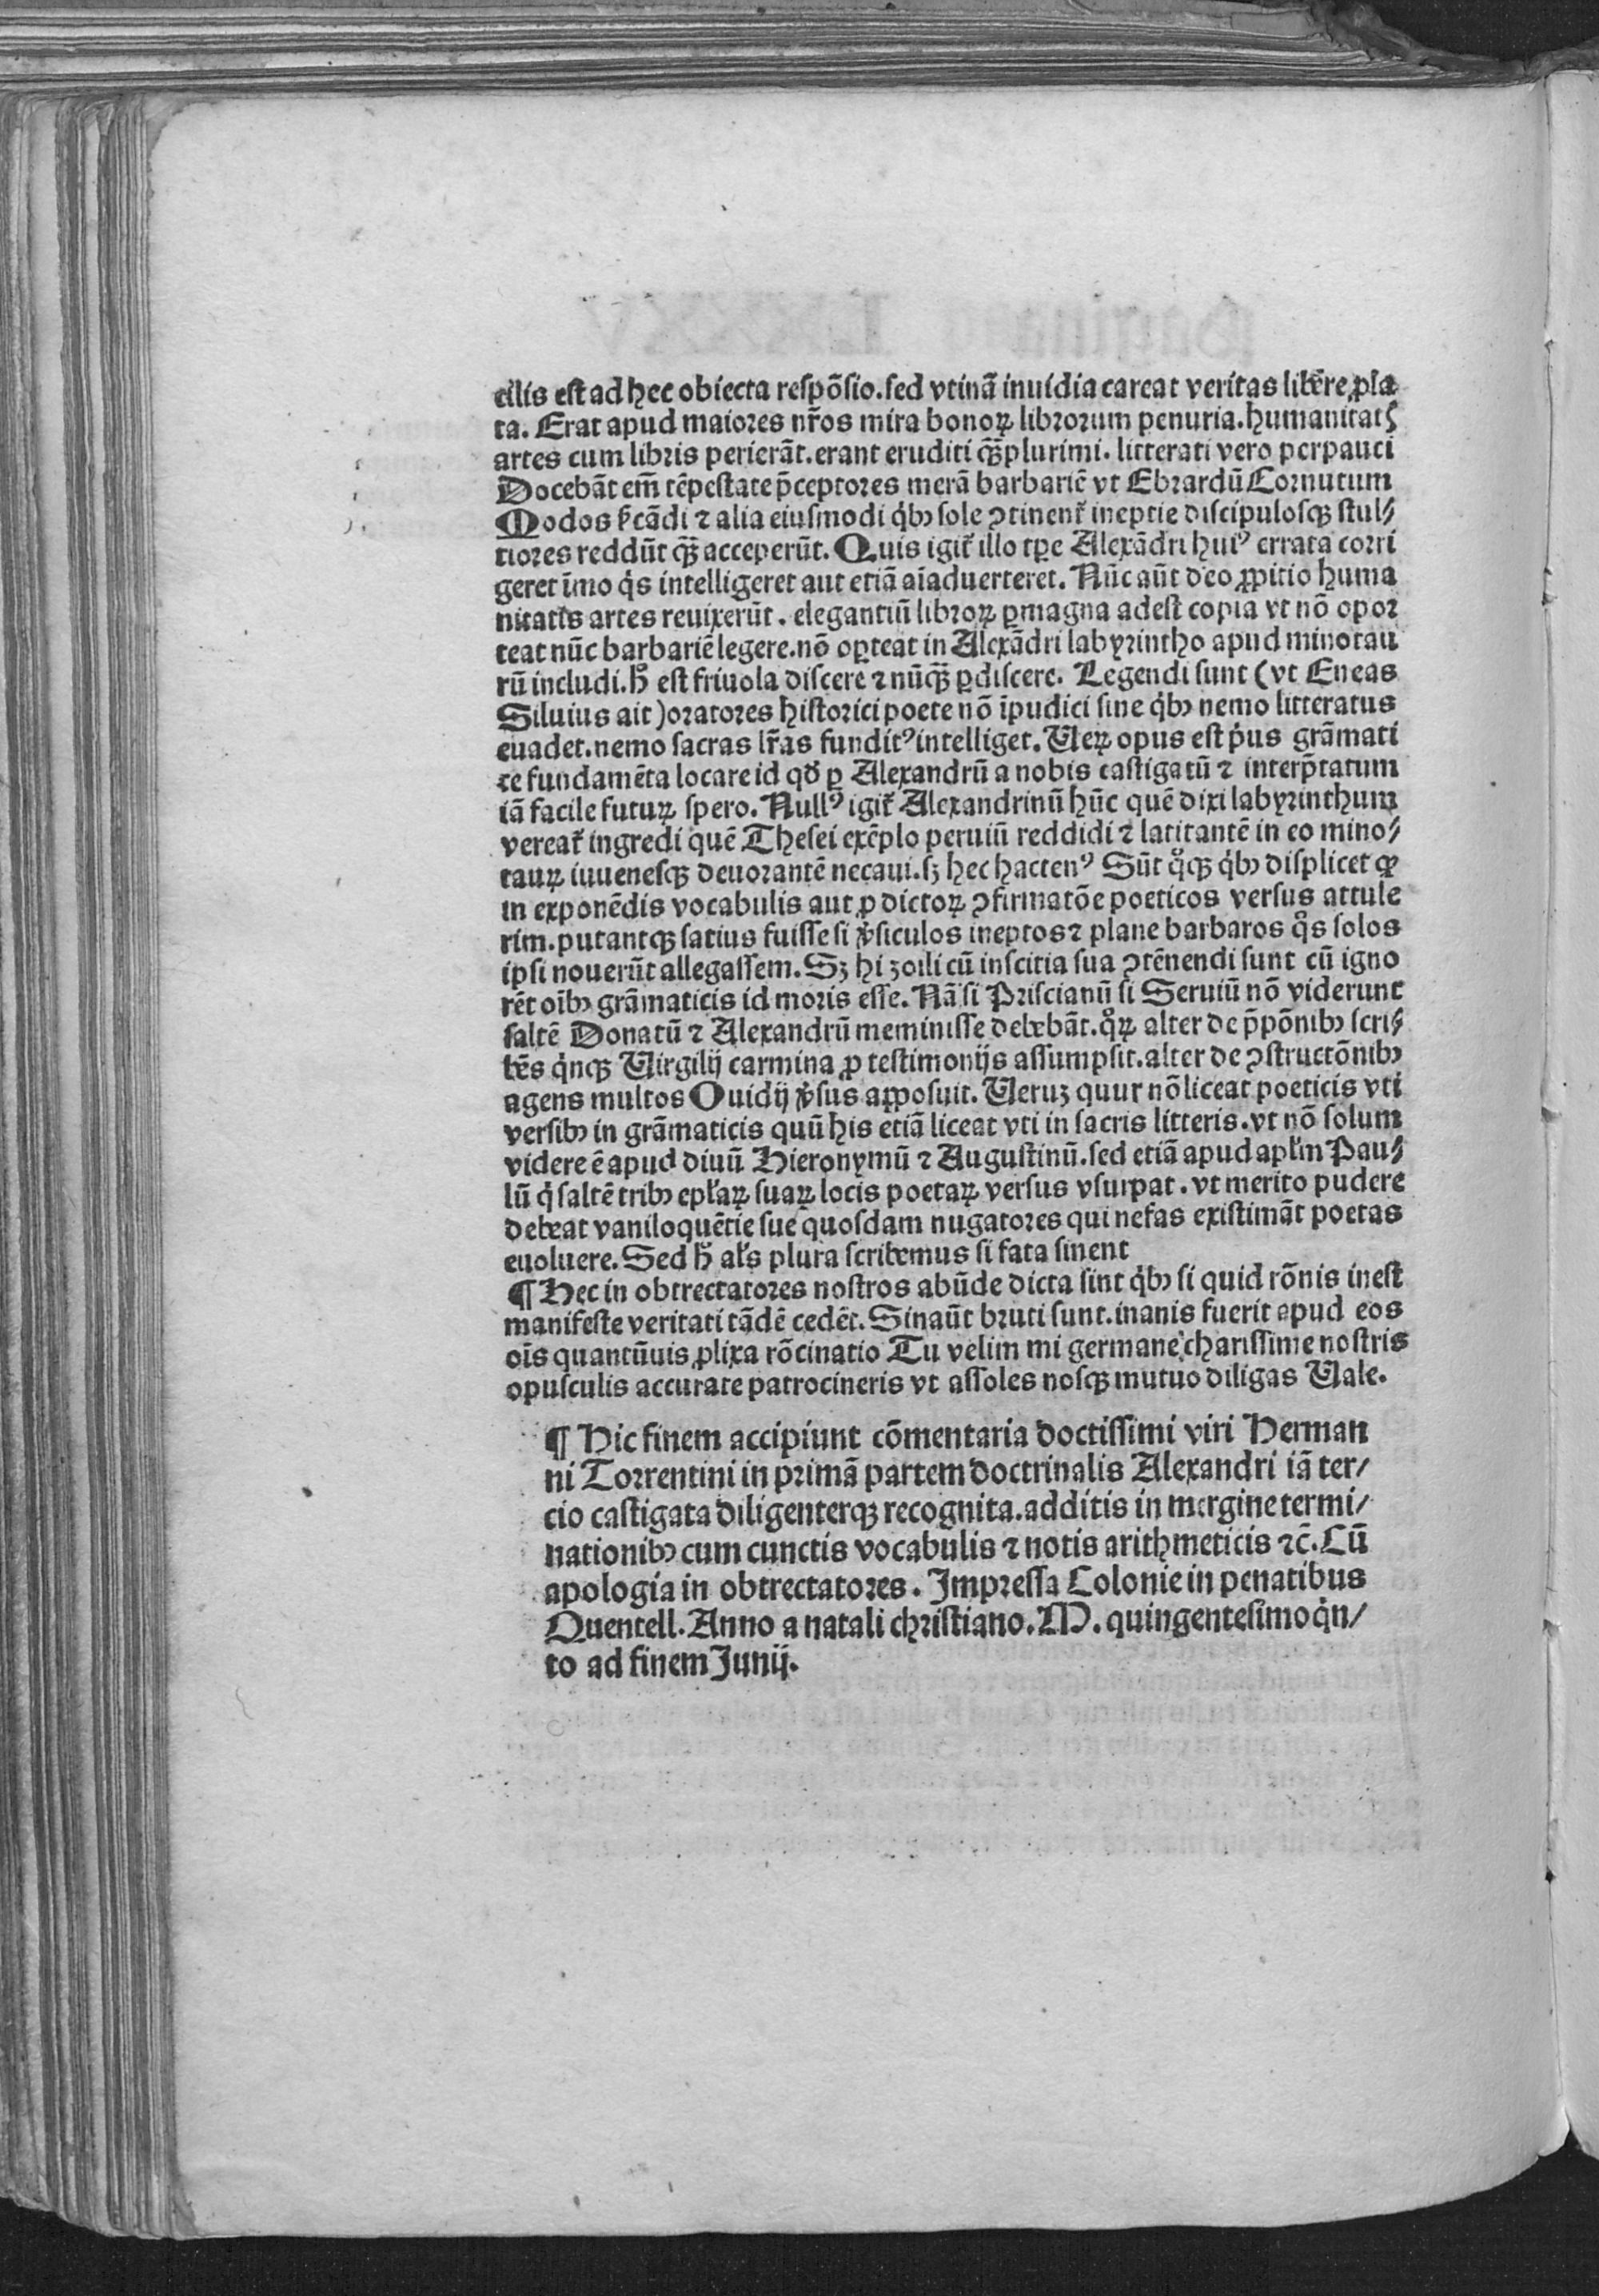 cilis est ad hec obiecta respõsio. sed vtinã inuidia careat veritas libere ꝓla
ta. Erat apud maiores nr̃os mira bonoꝝ librorum penuria. humanitatꝭ
artes cum libris perierãt. erant eruditi qᷓꝫplurimi. litterati vero perpauci
Docebãt em̃ tẽpestate p̃ceptores merã barbariẽ vt Ebrardũ Cornutum
Modos ẜcãdi ⁊ alia eiusmodi qͥbꝰ sole ꝯtinent̃ ineptie discipulosqꝫ stul⸗
tiores reddũt qᷓꝫ acceperũt. Quis igit̃ illo tꝑe Alexãdri huiꝰ errata corri
geret ĩmo qͥs intelligeret aut etiã aĩaduerteret. Nũc aũt deo ꝓpitio huma
nitatis artes reuixerũt. elegantiũ libroꝝ ꝑmagna adest copia vt nõ opor
teat nũc barbariẽ legere. nõ oꝑteat in Alexãdri labyrintho apud minotau
rũ includi. hͦ est friuola discere ⁊ nũqᷓꝫ ꝑdiscere. Legendi sunt (vt Eneas
Siluius ait) oratores historici poete nõ ĩpudici sine qͥbꝰ nemo litteratus
euadet. nemo sacras lr̃as funditꝰ intelliget. Ueꝝ opus est pͥus grãmati
ce fundamẽta locare id qđ ꝑ Alexandrũ a nobis castigatũ ⁊ interp̃tatum
iã facile futuꝝ spero. Nullꝰ igit̃ Alexandrinũ hũc quẽ dixi labyrinthum
vereat̃ ingredi quẽ Thesei exẽplo peruiũ reddidi ⁊ latitantẽ in eo mino⸗
tauꝝ iuuenesqꝫ deuorantẽ necaui. sꝫ hec hactenꝰ Sũt qͦqꝫ qͥbꝰ displicet ꝙ
in exponẽdis vocabulis aut ꝓ dictoꝝ ꝯfirmatõe poeticos versus attule
rim. putantqꝫ satius fuisse si v̾siculos ineptos ⁊ plane barbaros qͦs solos
ipsi nouerũt allegassem. Sꝫ hi zoili cũ inscitia sua ꝯtẽnendi sunt cũ igno
rẽt oĩbꝰ grãmaticis id moris esse. Nã si Priscianũ si Seruiũ nõ viderunt
saltẽ Donatũ ⁊ Alexandrũ meminisse debebãt. qͦꝝ alter de p̃põnibꝰ scri⸗
bẽs qͥnqꝫ Uirgilij carmina ꝓ testimonijs assumpsit. alter de ꝯstructõnibꝰ
agens multos Ouidij v̾sus apposuit. Ueruꝫ quur nõ liceat poeticis vti
versibꝰ in grãmaticis quũ his etiã liceat vti in sacris litteris. vt nõ solum
videre ẽ apud diuũ Hieronymũ ⁊ Augustinũ. sed etiã apud apl̃m Pau⸗
lũ qͥ saltẽ tribꝰ epl̃aꝝ suaꝝ locis poetaꝝ versus vsurpat. vt merito pudere
debeat vaniloquẽtie sue quosdam nugatores qui nefas existimãt poetas
euoluere. Sed hͦ al̃s plura scribemus si fata sinent
¶ Hec in obtrectatores nostros abũde dicta sint qͥbꝰ si quid rõnis inest
manifeste veritati tãdẽ cedẽt. Sin aũt bruti sunt. inanis fuerit apud eos
oĩs quantũuis ꝓlixa rõcinatio Tu velim mi germane charissime nostris
opusculis accurate patrocineris vt assoles nosqꝫ mutuo diligas Uale.
¶ Hic finem accipiunt cõmentaria doctissimi viri Herman
ni Torrentini in primã partem doctrinalis Alexandri iã ter/
cio castigata diligenterqꝫ recognita. additis in margine termi/
nationibꝰ cum cunctis vocabulis ⁊ notis arithmeticis ⁊c̃. Cũ
apologia in obtrectatores. Impressa Colonie in penatibus
Quentell. Anno a natali christiano. M. quingentesimo qͥn/
to ad finem Junij.